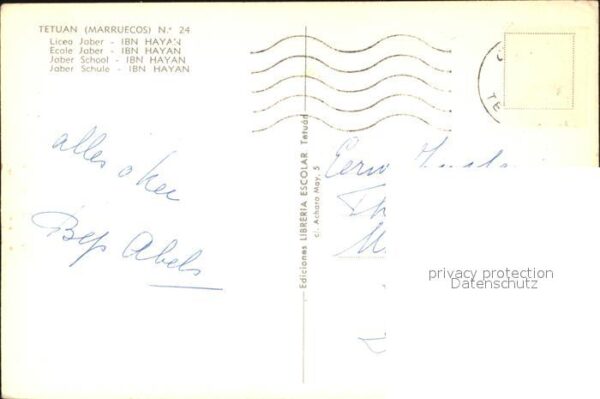 TETUAN (MARRUECOS) N.º 24
Liceo Jaber - IBN HAYAN
Ecole Jaber - IBN HAYAN
Jaber School - IBN HAYAN
Jaber Schule - IBN HAYAN
alles oke
Bep Abels
Ediciones LIBRERIA ESCOLAR. Tetuán
c/. Achara May, 5
TE
Eerw
privacy protection
Datenschutz